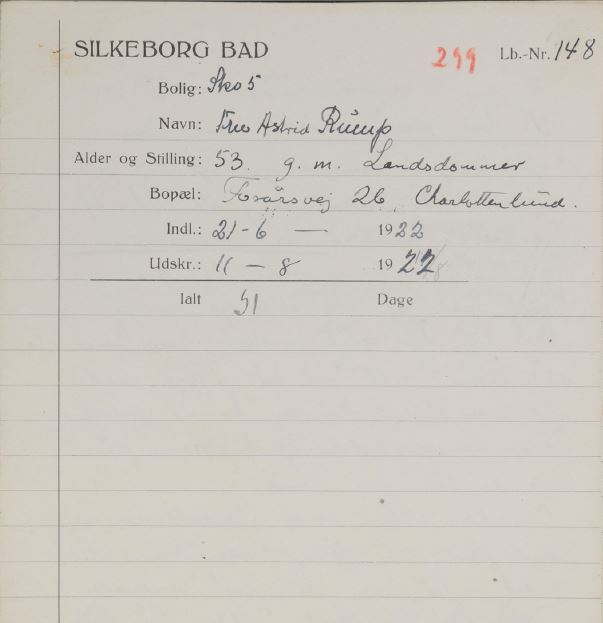 SILKEBORG BAD 299 Lb.-Nr. 148
Bolig: Sko 5
Navn: Fru Astrid Rump
Alder og Stilling: 53. g. m. Landsdommer
Bopæl: 26, Charlottenlund.
Indl.: 21-6 — 1922
Udskr.: 11 — 8 1922
Ialt 51 Dage